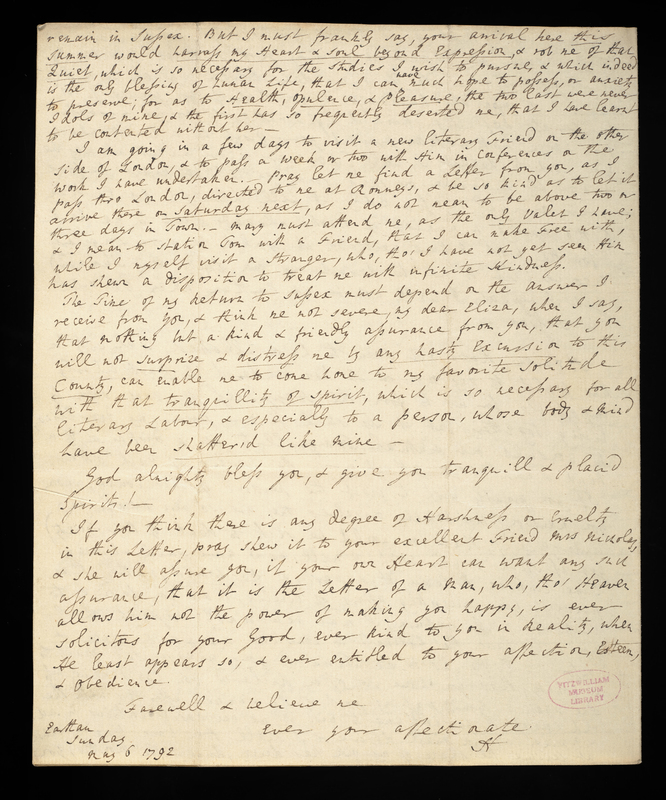 remain in Sussex. But I must frankly say, your arrival here this
summer would harrass my Heart & soul beyond Expression, & rob me of that
Quiet, which is so necessary for the studies I wish to pursue, & which indeed
is the only blessing of human Life, that I can have much hope to possess, or anxiety
to preserve; for as to Health, opulence, & Pleasure, the two last were never
Idols of mine, & the first has so frequently deserted me, that I have learnt
to be contented without her —
I am going in a few days to visit a new literary Friend on the other
side of London, & to pass a week or two with Him in Conferences on the
work I have undertaken. — Pray let me find a Letter from you, as I
pass thro London, directed to me at Romneys, & be so kind as to let it
arrive there on Saturday next, as I do not mean to be above two or
three days in Town. — Mary must attend me, as the only Valet I have;
& I mean to station Tom with a Friend, that I can make Free with,
while I myself visit a Stranger, who, tho' I have not yet seen Him
has shewn a disposition to treat me with infinite Kindness.
The Time of my Return to Sussex must depend on the answer I
receive from you, & think me not severe, my dear Eliza, when I say,
that nothing but a kind & friendly assurance from you, that you
will not surprize & distress me by any hasty Excursion to this
County, can enable me to come home to my favorite solitude
with that tranquillity of spirit, which is so necessary for all
literary Labour, & especially to a person, whose body & mind
have been shatter'd like mine —
God almighty bless you, & give you tranquill & placid
Spirits! —
If you think there is any degree of Harshness or Cruelty
in this Letter, pray shew it to your excellent Friend Mrs Nicholas,
& she will assure you, if your own Heart can want any such
assurance, that it is the Letter of a Man, who, tho' Heaven
allows him not the power of making you happy, is ever
solicitous for your Good, ever kind to you in Reality, when
He least appears so, & ever entitled to your affection, Esteem,
& obedience.
Farewell & believe me
Ever your affectionate
H
Eartham
Sunday
May 6 1792
FITZWILLIAM
MUSEUM
LIBRARY